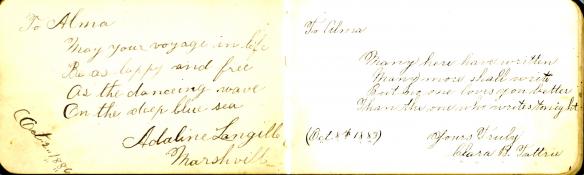 To Alma
May your voyage in life
Be as happy and free
As the dancing wave
On the deep blue sea
Adaline Langill
Marshvill
Oct 1886
To Alma
Many here have written
Many more shall write
But no one loves you better
Than the one who writes tonight
(Oct 8th 1889)
Yours Truly
Clara B. Tattrie